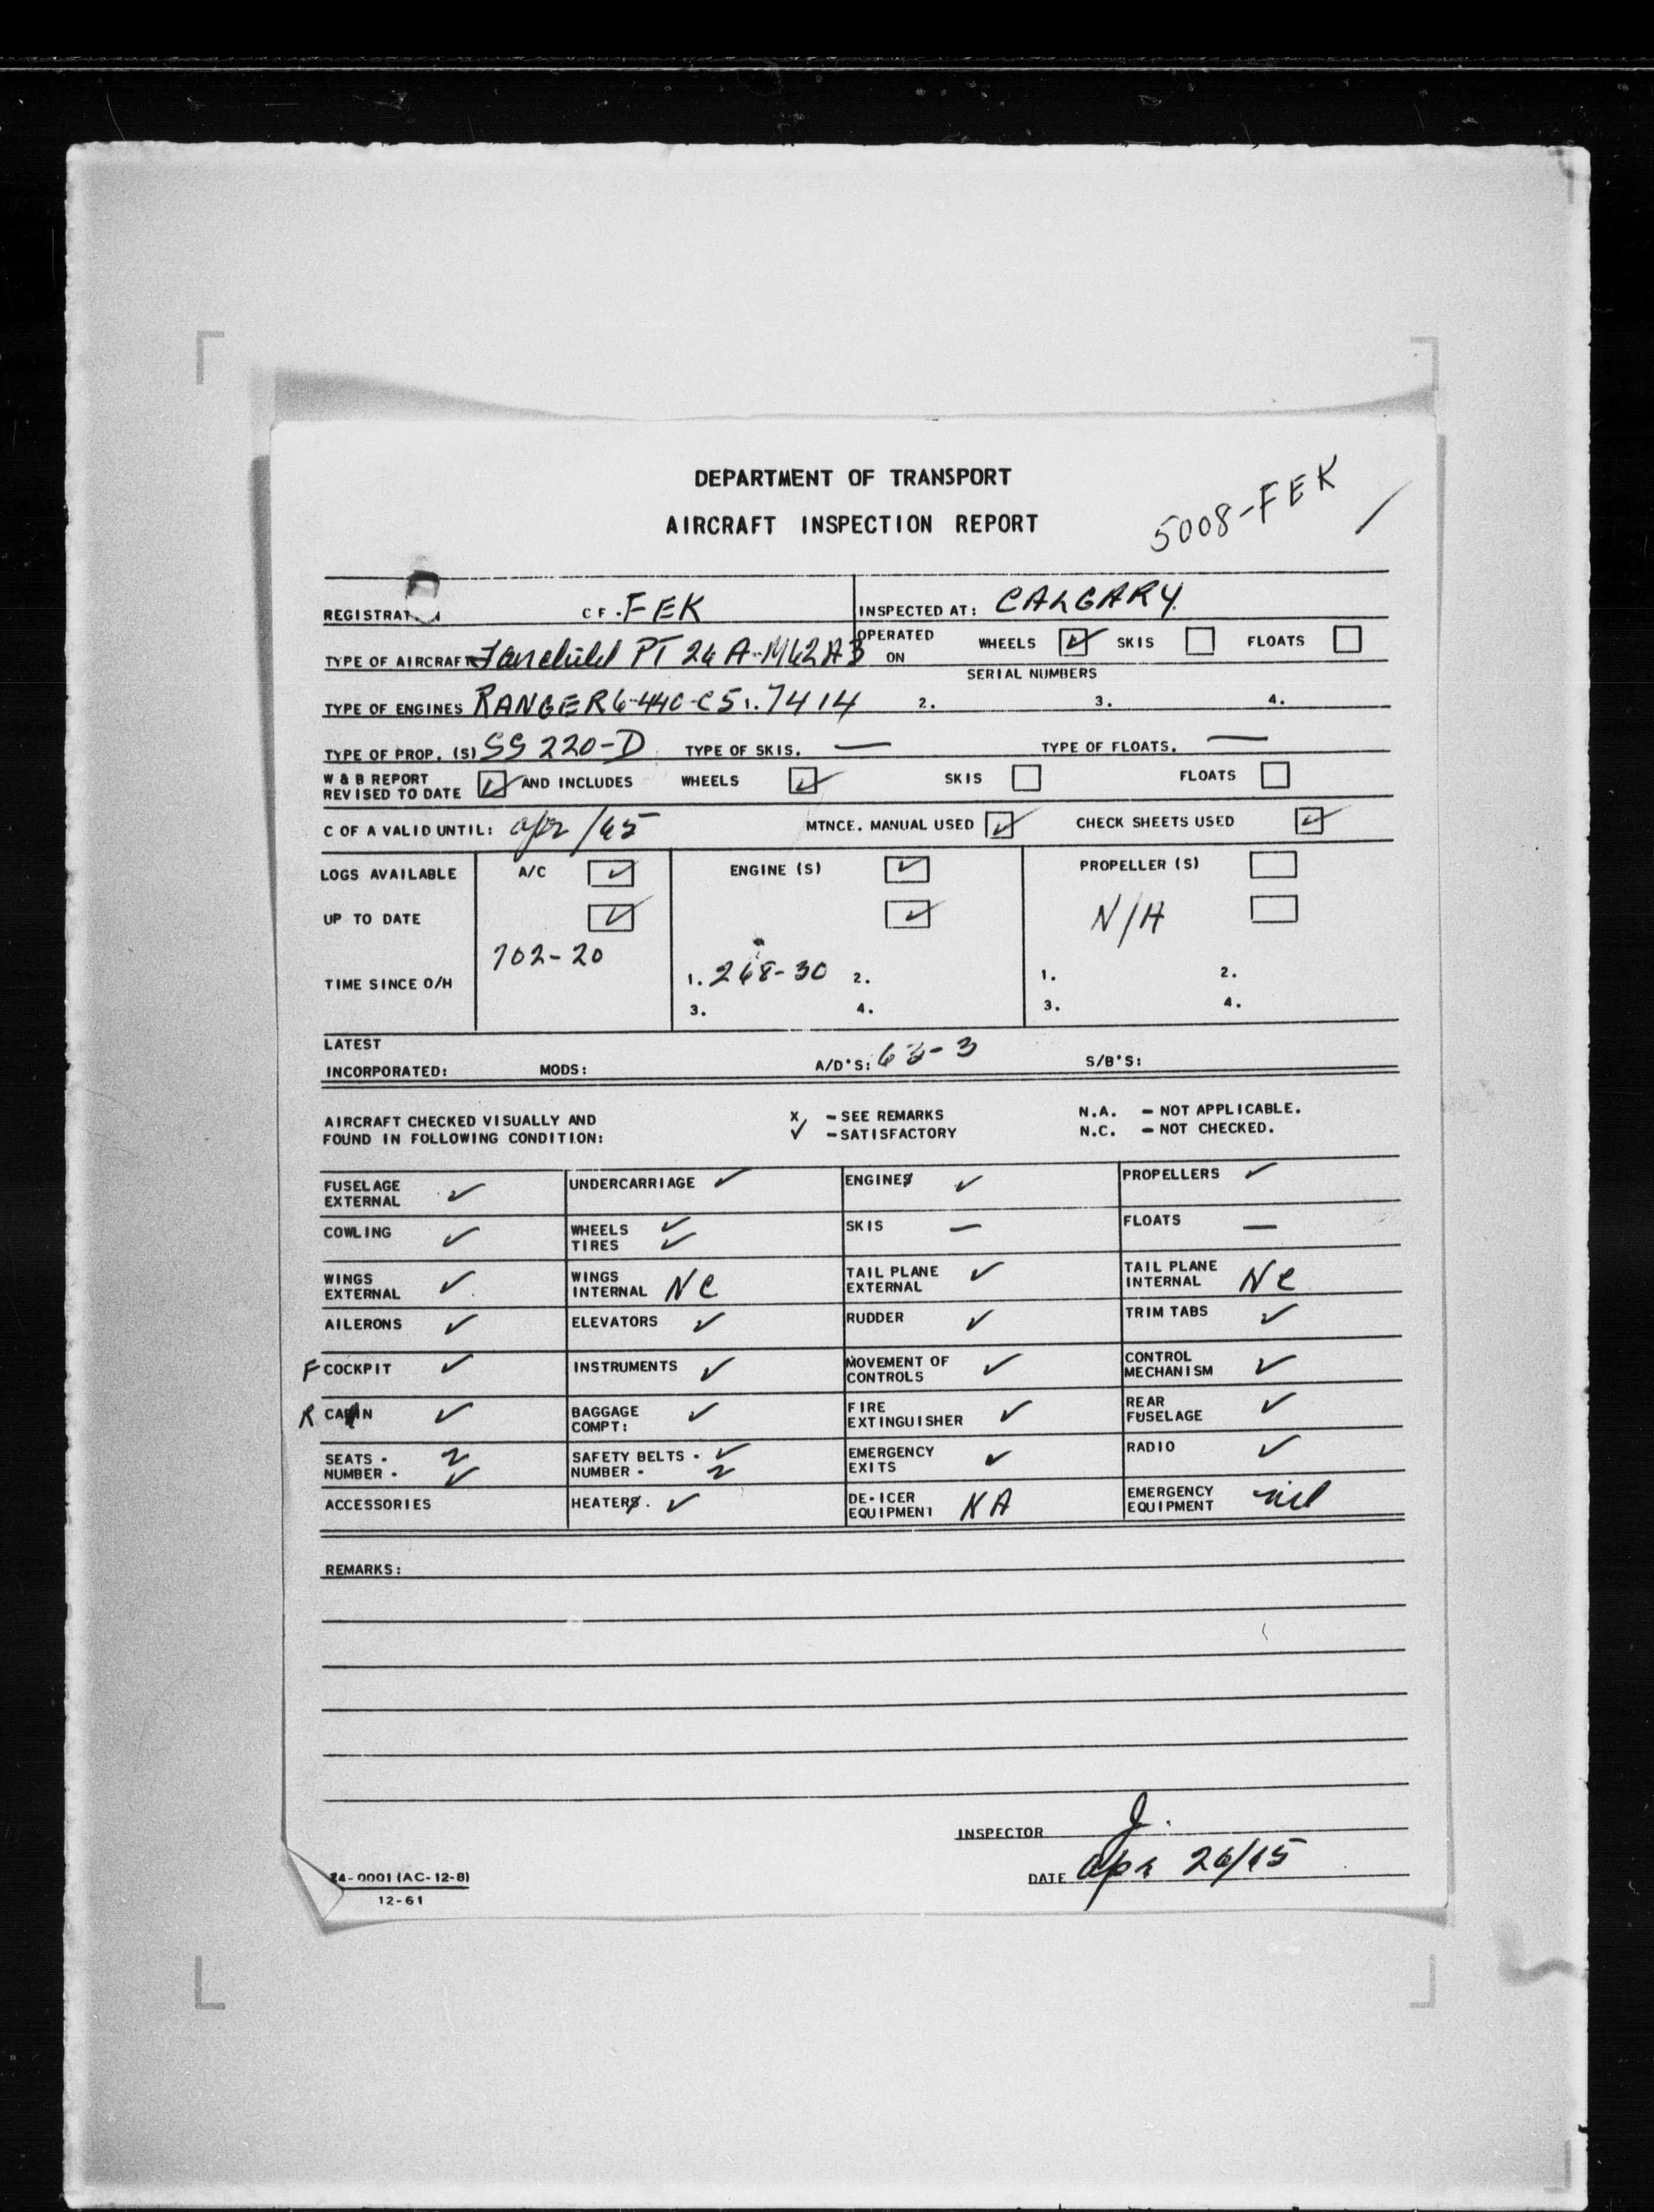 DEPARTMENT OF TRANSPORT
AIRCRAFT INSPECTION REPORT
5008-FEK
REGISTRAT
CF-FEK
INSPECTED AT: CALGARY
TYPE OF AIRCRAFT Fairchild PT 26 A-M62A3
OPERATED ON WHEELS ✓ SKIS FLOATS
SERIAL NUMBERS
TYPE OF ENGINES RANGER 6-440-C5 1. 7414 2. 3. 4.
TYPE OF PROP. (S) SS 220-D TYPE OF SKIS. — TYPE OF FLOATS. —
W & B REPORT
REVISED TO DATE ✓ AND INCLUDES WHEELS ✓ SKIS FLOATS
C OF A VALID UNTIL: Apr/65 MTNCE. MANUAL USED ✓ CHECK SHEETS USED ✓
LOGS AVAILABLE A/C ✓ ENGINE (S) ✓ PROPELLER (S)
UP TO DATE ✓ ✓ N/A
TIME SINCE O/H 702-20 1. 268-30 2. 1. 2.
3. 4. 3. 4.
LATEST
INCORPORATED: MODS: A/D'S: 63-3 S/B'S:
AIRCRAFT CHECKED VISUALLY AND
FOUND IN FOLLOWING CONDITION:
X - SEE REMARKS
✓ - SATISFACTORY
N.A. - NOT APPLICABLE.
N.C. - NOT CHECKED.
FUSELAGE EXTERNAL ✓ UNDERCARRIAGE ✓ ENGINES ✓ PROPELLERS ✓
COWLING ✓ WHEELS ✓ TIRES ✓ SKIS — FLOATS —
WINGS EXTERNAL ✓ WINGS INTERNAL NC TAIL PLANE EXTERNAL ✓ TAIL PLANE INTERNAL NC
AILERONS ✓ ELEVATORS ✓ RUDDER ✓ TRIM TABS ✓
F COCKPIT ✓ INSTRUMENTS ✓ MOVEMENT OF CONTROLS ✓ CONTROL MECHANISM ✓
R CABIN ✓ BAGGAGE COMPT: ✓ FIRE EXTINGUISHER ✓ REAR FUSELAGE ✓
SEATS - 2 NUMBER - ✓ SAFETY BELTS - ✓ NUMBER - 2 EMERGENCY EXITS ✓ RADIO ✓
ACCESSORIES HEATERS. ✓ DE-ICER EQUIPMENT NA EMERGENCY EQUIPMENT nil
REMARKS:
INSPECTOR J.
DATE Apr 26/65
24-0001 (AC-12-8)
12-61